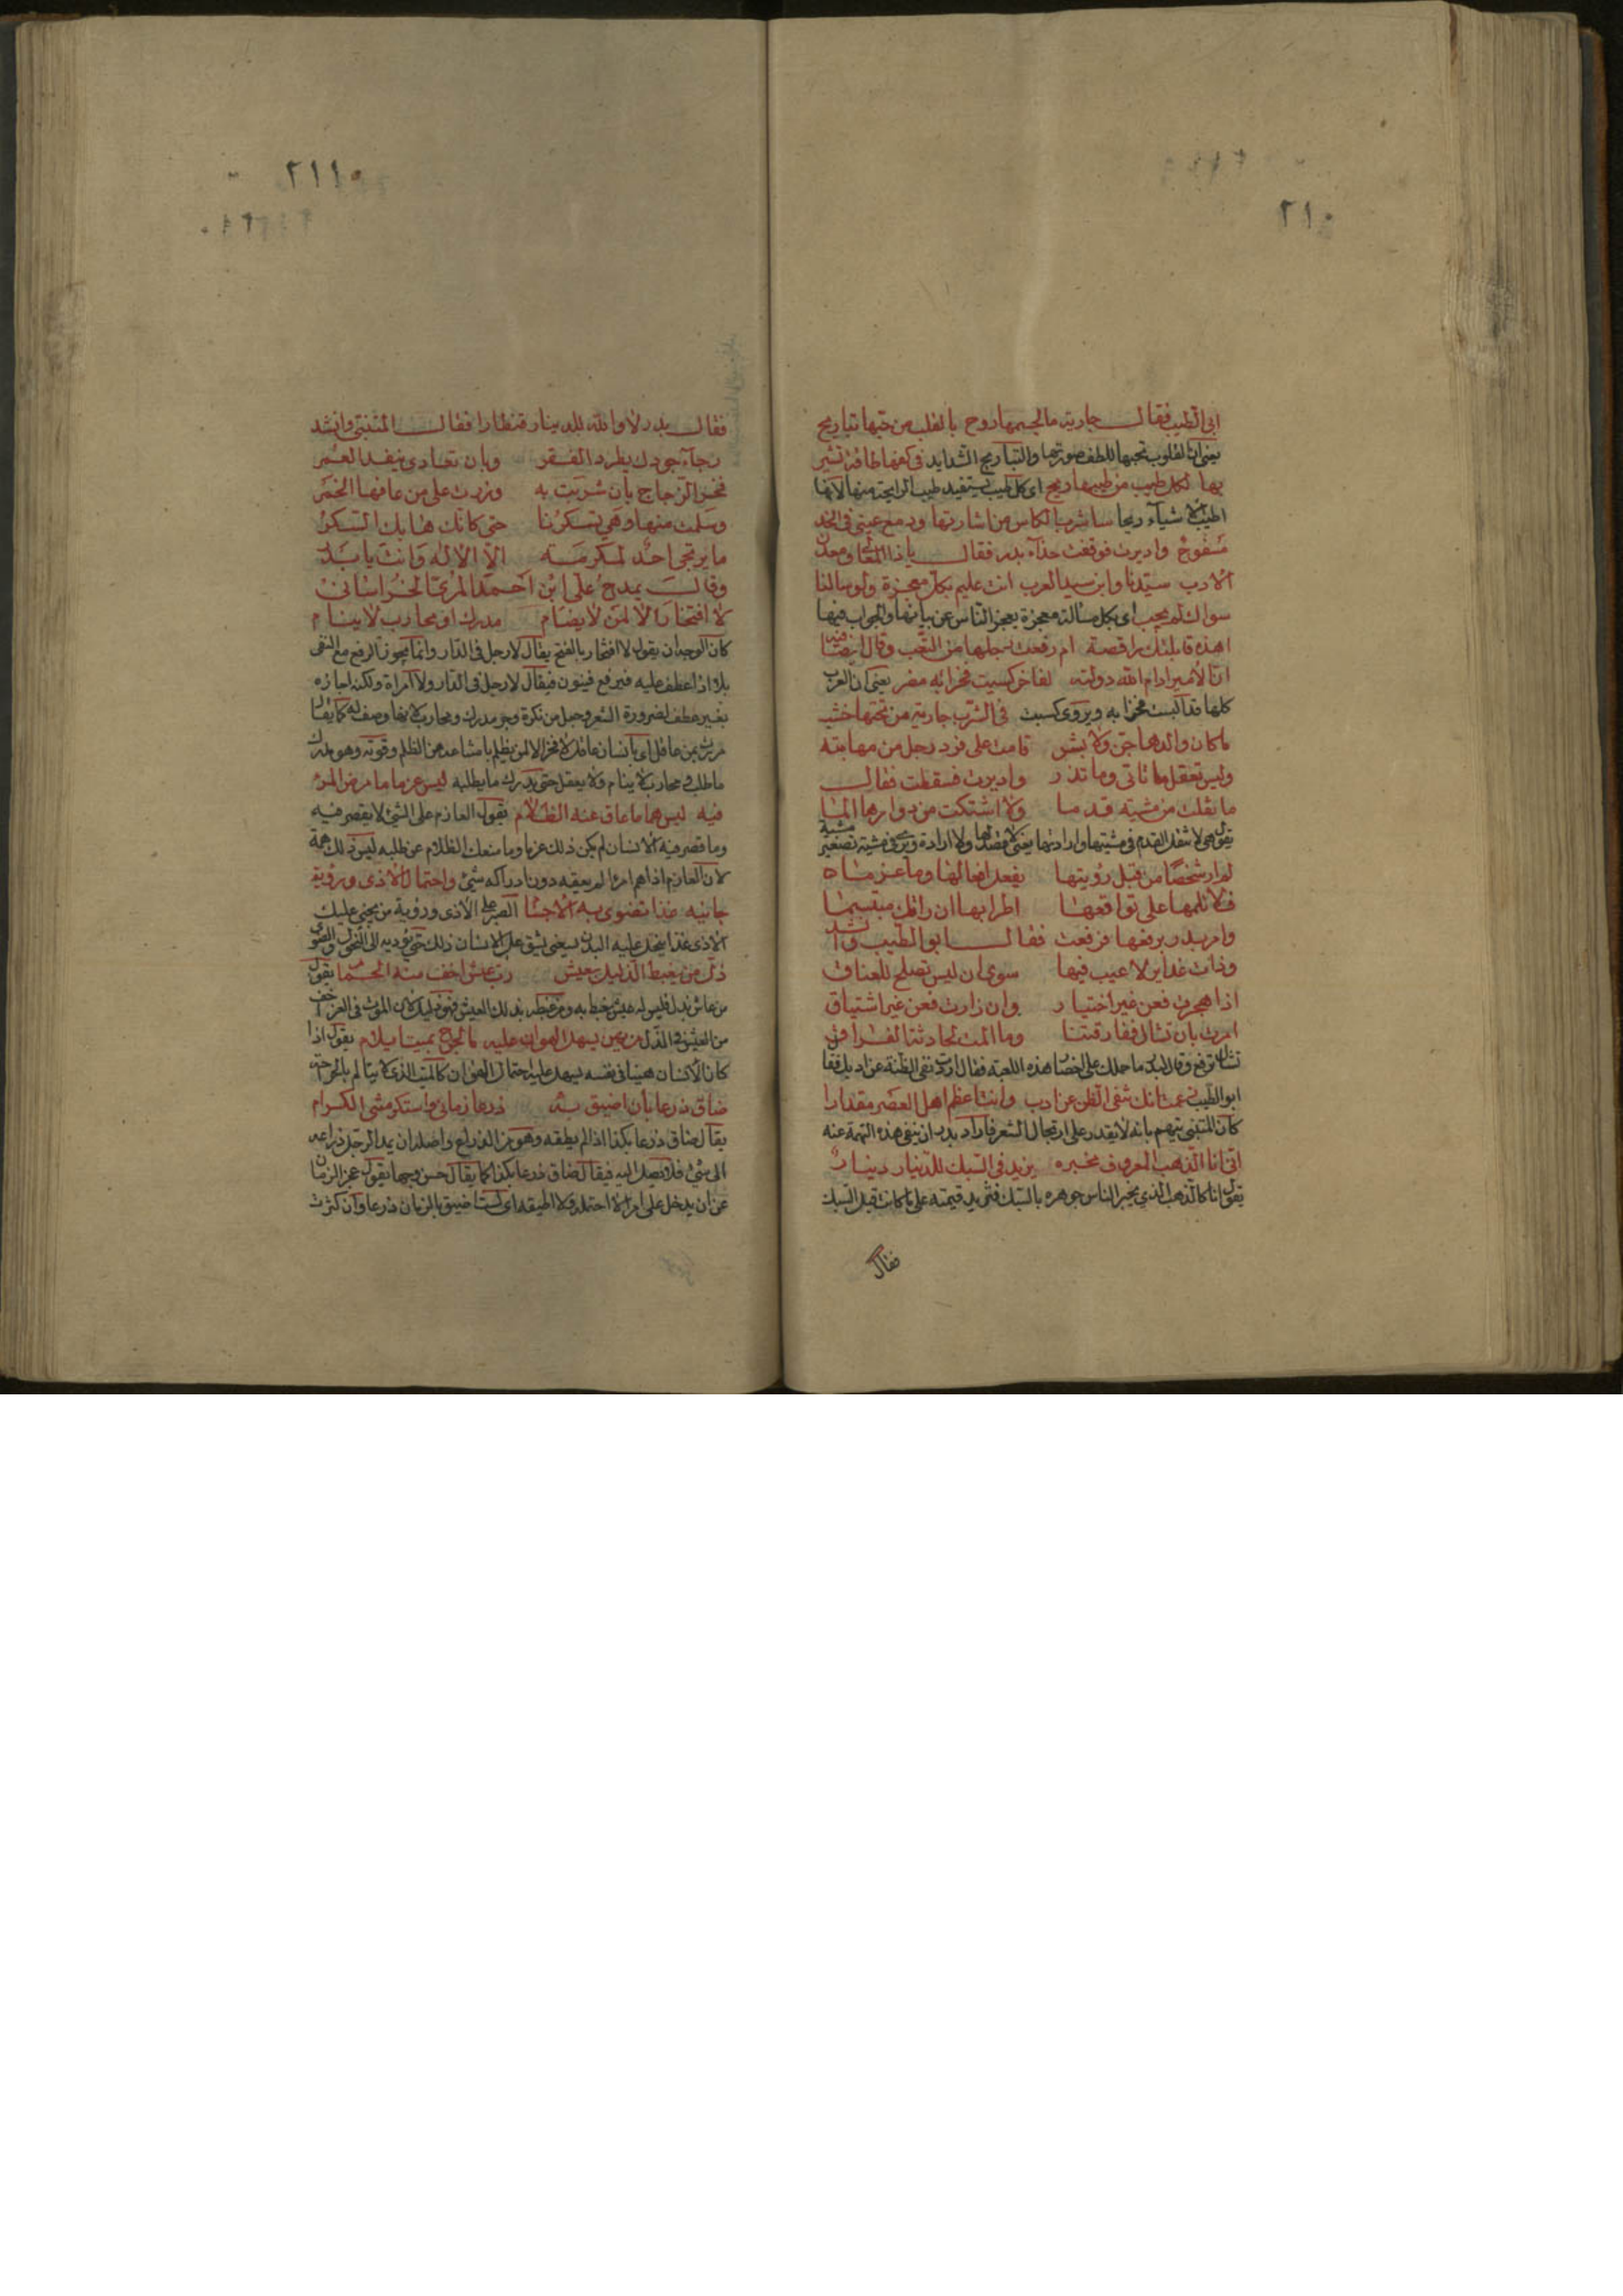 ٢١٠
ابى الطيب فقال جارية ما لجسمها روح بالقلب من حبها تباريح
يعنى ان القلوب تحبها للطف صورتها والتباريح الشدايد فى كفها طاقة تشير
بها لكل طيب من طيبها ريح اى كل طيب يستفيد طيب الرايحة منها لانها
اطيب الاشياء ريحا ساشرب الكاس من اشارتها ودمع عينى فى الخد
مسفوح واديرت فوقفت حذآء بدر فقال ياذا المعالى ومعدن
الادب سيدنا وابن سيد العرب انت عليم بكل معجزة ولو سالنا
سواك لم يجب اى بكل مسالة معجزة يعجز الناس عن بيانها والجواب فيها
اهذه قابلتك راقصة ام رفعت رجلها من التعب وقال ايضا
ان الامير ادام الله دولته لفاخر كسيت فخرا به مضر يعنى ان العرب
كلها قد اكبست فخرا به ويروى كسبت فى الشرب جارية من تحتها خشب
ما كان والدها جن ولا بشر قامت على فرد رجل من مهابته
وليس تعقل ما تاتى وما تذر واديرت فسقطت فقال
ما نقلت من مشية قدما ولا اشتكت من دوارها الما
يقول هى لا تنقل القدم فى مشيتها وارادتها يعنى لا قصد لها ولا ارادة ويروى فى مشيتة تصغير مشية
لم ار شخصا من قبل رؤيتها يفعل افعالها وما عزما
فلا تلمها على تواقعها اطربها ان راتك مبتسما
وامر بدر برفعها فرفعت فقال ابو الطيب وانشد
وذات غداير لا عيب فيها سوى ان ليس تصلح للعناق
اذا هجرت فعن غير اختيار وان زارت فعن غير اشتياق
امرت بان تشال ففارقتنا وما المت لحادثة الفراق
تشال ترفع وقال لبدر ما حملك على احضار هذه اللعبة فقال اردت نفى الظنة عن ادبك فقال
ابو الطيب زعمت انك تنفى الظن عن ادبى وانت اعظم اهل العصر مقدارا
كان المتنبى يتهم بانه لا يقدر على ارتجال الشعر فاراد بدر ان ينفى هذه التهمة عنه
انى انا الذهب المعروف مخبره يزيد فى السبك للدينار دينارا
يقول انا كالذهب الذى يخبر الناس جوهره بالسبك فتزيد قيمته على ما كانت قبل السبك
فقال
٢١١
فقال بدر لا والله بل للدينار قنطارا فقال المتنبى وانشد
رجآء جودك يطرد الفقر وبان تعادى ينفد العمر
فخر الزجاج بان شربت به وزرت على من عافها الخمر
وسلمت منها وهى تسكرنا حتى كانك هابك السكر
ما يرتجى احد لمكرمة الا الاله وانت يا بدر
وقال يمدح على ابن احمد المرى الخراسانى
لا افتخار الا لمن لا يضام مدرك او محارب لا ينام
كان الوجه ان يقول لا افتخار بالفتح يقال لا رجل فى الدار وانما يجوز الرفع مع النفى
بلا اذا عطف عليه فيرفع فينون فيقال لا رجل فى الدار ولا امراة ولكنه اجازه
بغير عطف لضرورة الشعر وجعل من نكرة وجر مدرك ومحارب لانها وصف له كما يقال
مررت بمن عاقل اى بانسان عاقل لا فخر الا لمن يظلم بامتناعه من الظلم وقوته وهو مدرك
ما طلب ومحارب لا ينام ولا يغفل حتى يدرك ما يطلبه ليس عزما ما مرض المرء
فيه ليس هما ما عاق عنه الظلام يقول العازم على الشئ لا يقصر فيه
وما قصر فيه الانسان لم يكن ذلك عزما وما منعك الظلام عن طلبه ليس ذلك همة
لان العازم اذا هم امرا لم يعقه دون ادراكه شئ واحتمال الاذى ورؤية
جانيه غذا تضوى به الاجسا الصبر على الاذى ورؤية من يجنى عليك
الاذى غذا ينحل عليه البدن يعنى يشق على الانسان ذلك حتى يوديه الى النحول والضوى
ذل من يغبط الذليل بعيش رب عيش اخف منه الحما يقول
من عاش بذل فليس له عيش يغبط به ومن غبطه بذلك العيش فهو ذليل لان الموت فى العز اخف
من العيش فى الذل من يهن يسهل الهوان عليه ما لجرح بميت ايلام يقول اذا
كان الانسان هينا فى نفسه يسهل عليه احتمال الهوان كالميت الذى لا يتالم بالجراحة
ضاق ذرعا بان اضيق به ذرعا زمانى واستكرمتنى الكرام
يقال ضاق ذرعا بكذا اذا لم يطقه وهو من الذراع واصله ان يمد الرجل ذراعه
الى شئ فلا يصل اليه فيقال ضاق ذرعا بكذا كما يقال حسن وجها يقول عجز الزمان
عن ان يدخل على امرا لا احتمله ولا اطيقه اى لست اضيق بالزمان ذرعا وان كثرت